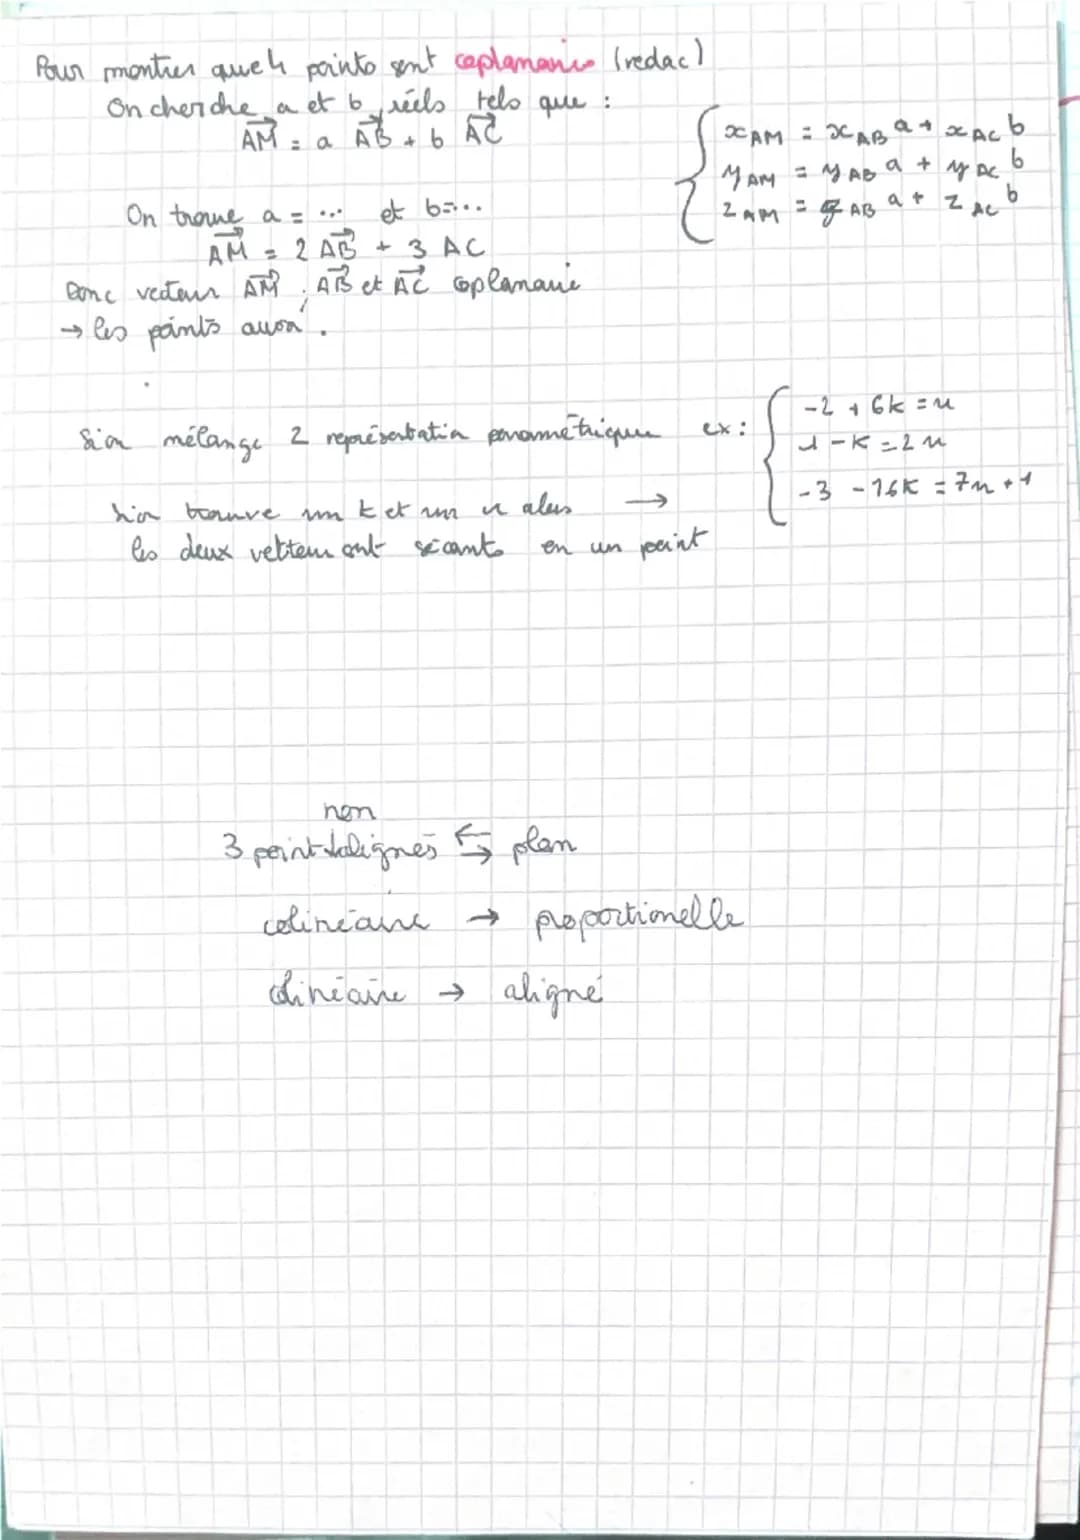 Pour montrer que 4 points sont coplanaires (redac)
On cherche a et b réels tels que :
AM = a AB + b AC
x AM = x AB a + x AC b
y AM = y AB a + y AC b
z AM = z AB a + z AC b
On trouve a = ... et b=...
AM = 2 AB + 3 AC
Donc vecteur AM, AB et AC coplanaire
→ les points aussi.
Si on mélange 2 représentation paramétrique ex :
-2 + 6k = u
1 - k = 2u
-3 - 16k = 7u + 1
Si on trouve un k et un u alors →
les deux vecteur sont sécants en un point
non
3 point alignés ⇆ plan
colinéaire → proportionelle
colinéaire → aligné